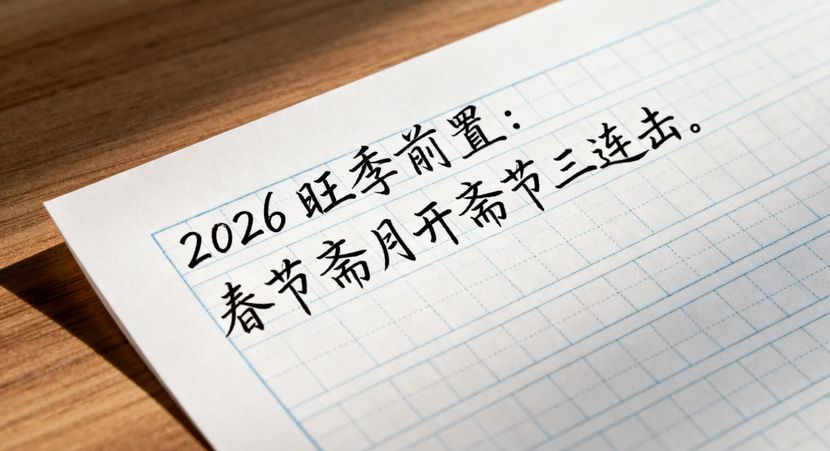 2026旺季前置：
春节斋月开斋节三连击。